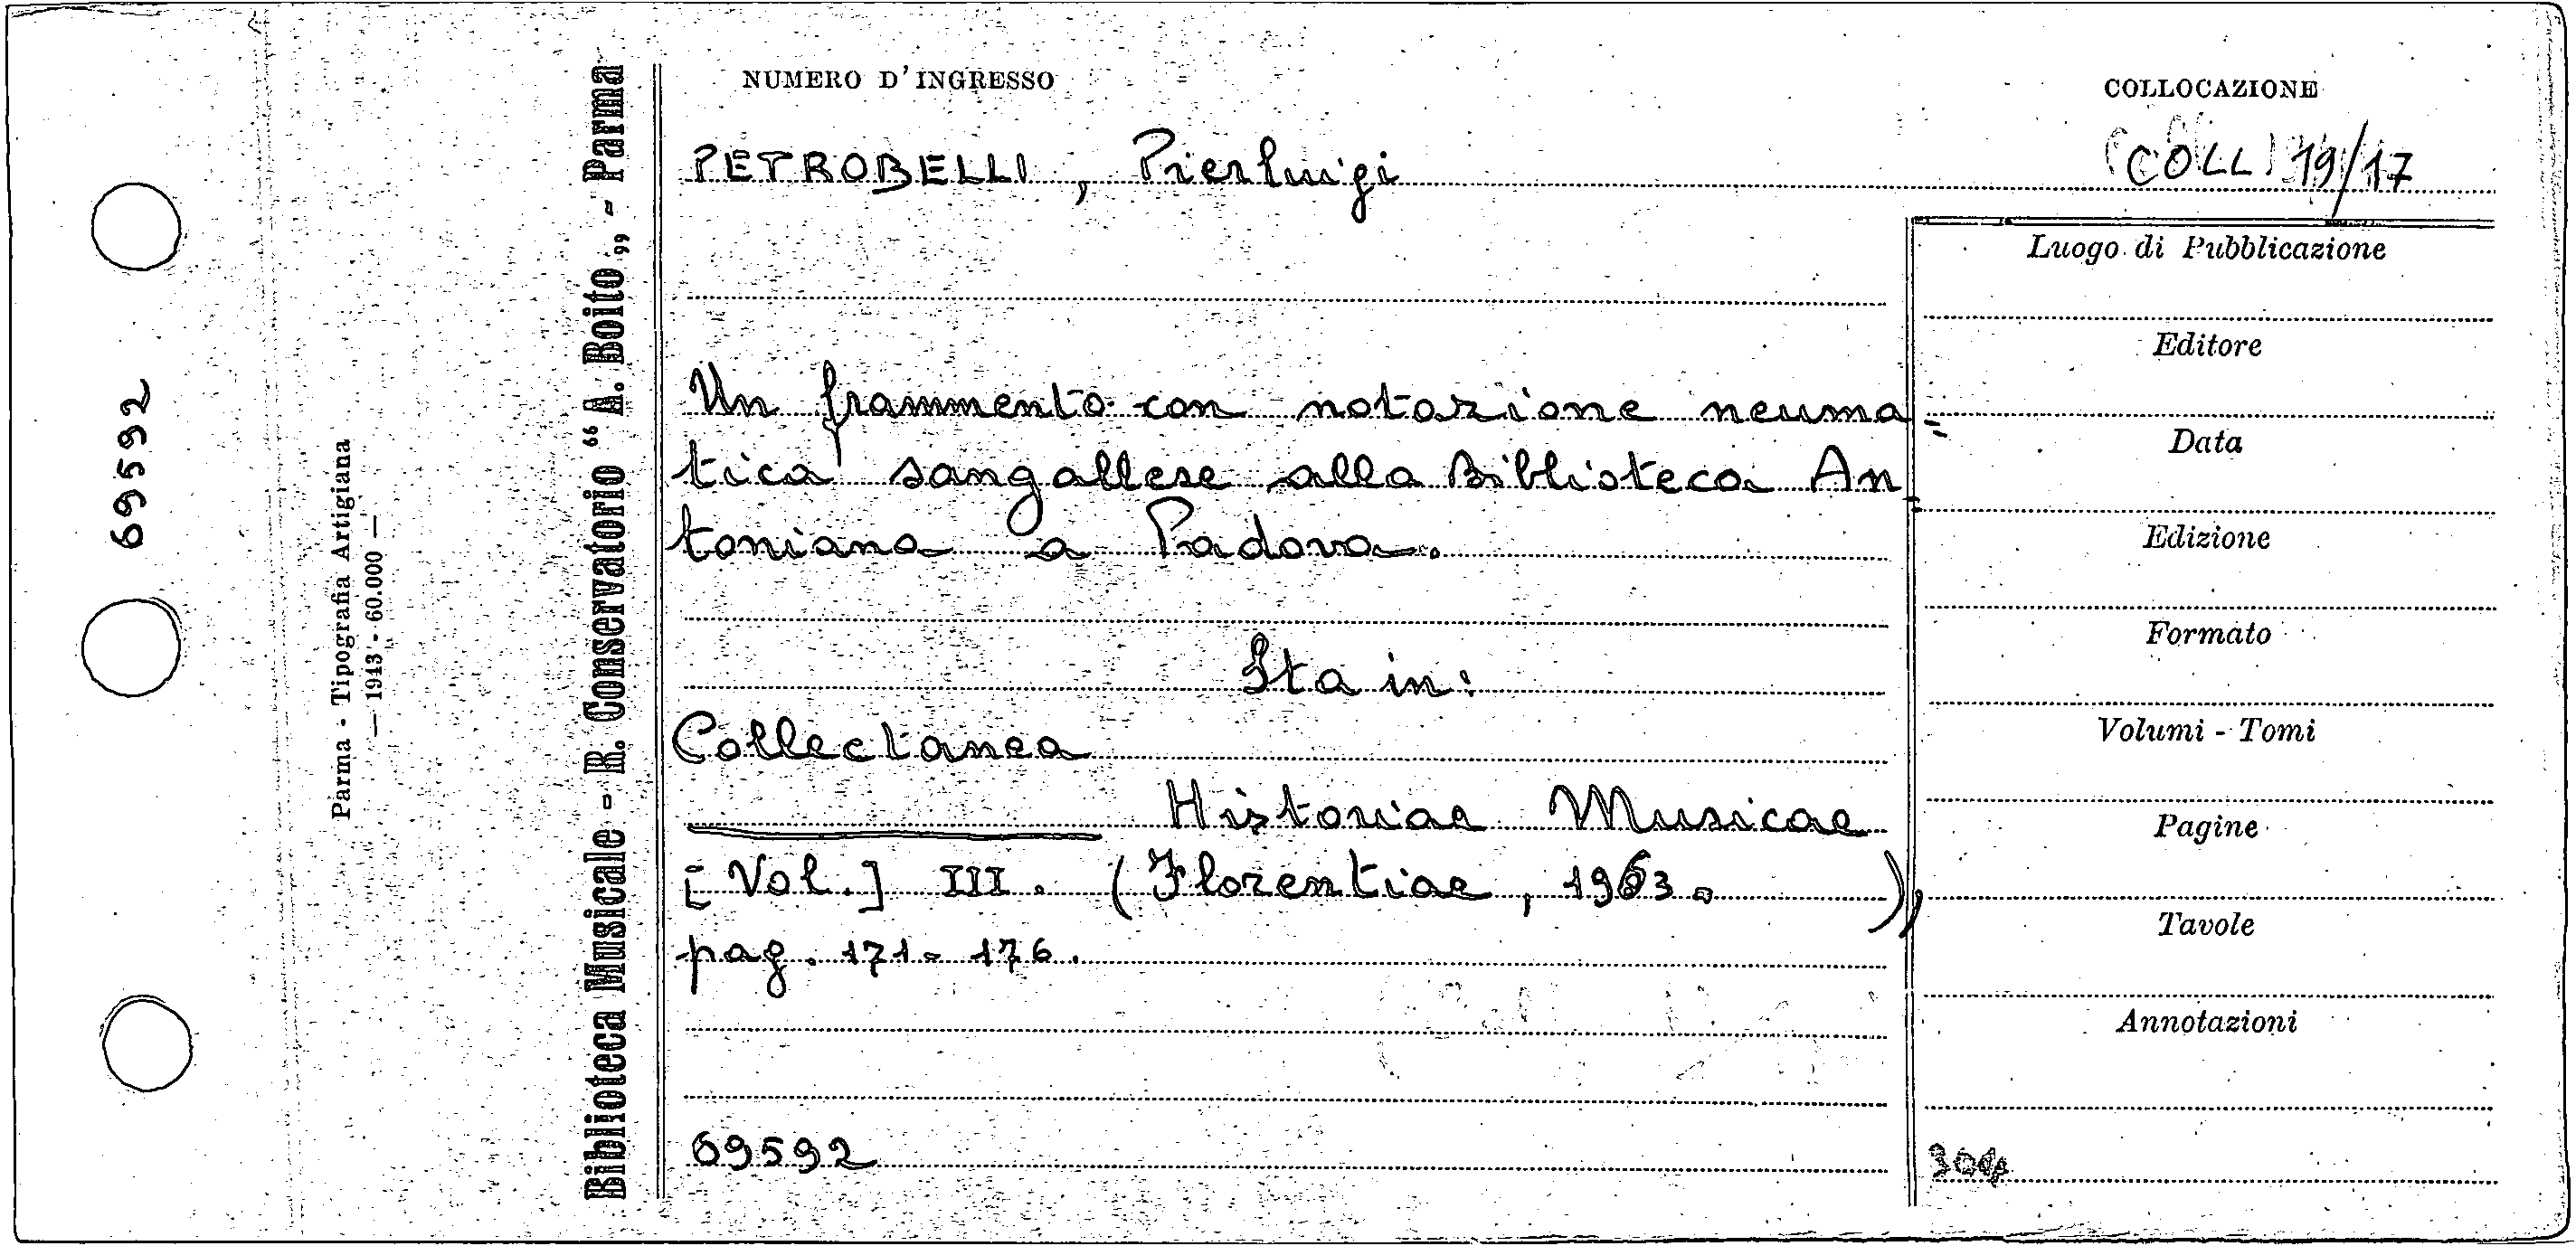 69592
Parma - Tipografia Artigiana
— 1943 - 60.000 —
Biblioteca Musicale - R. Conservatorio “ A. Boito „ - Parma
NUMERO D'INGRESSO
COLLOCAZIONE
PETROBELLI, Pierluigi
(COLL) 19/17
Un frammento con notazione neuma=
tica sangallese alla Biblioteca An=
toniana a Padova.
Sta in:
Collectanea
Historiae Musicae
[Vol.] III. (Florentiae, 1963. ),
pag. 171-176.
69592
Luogo di Pubblicazione
Editore
Data
Edizione
Formato
Volumi - Tomi
Pagine
Tavole
Annotazioni